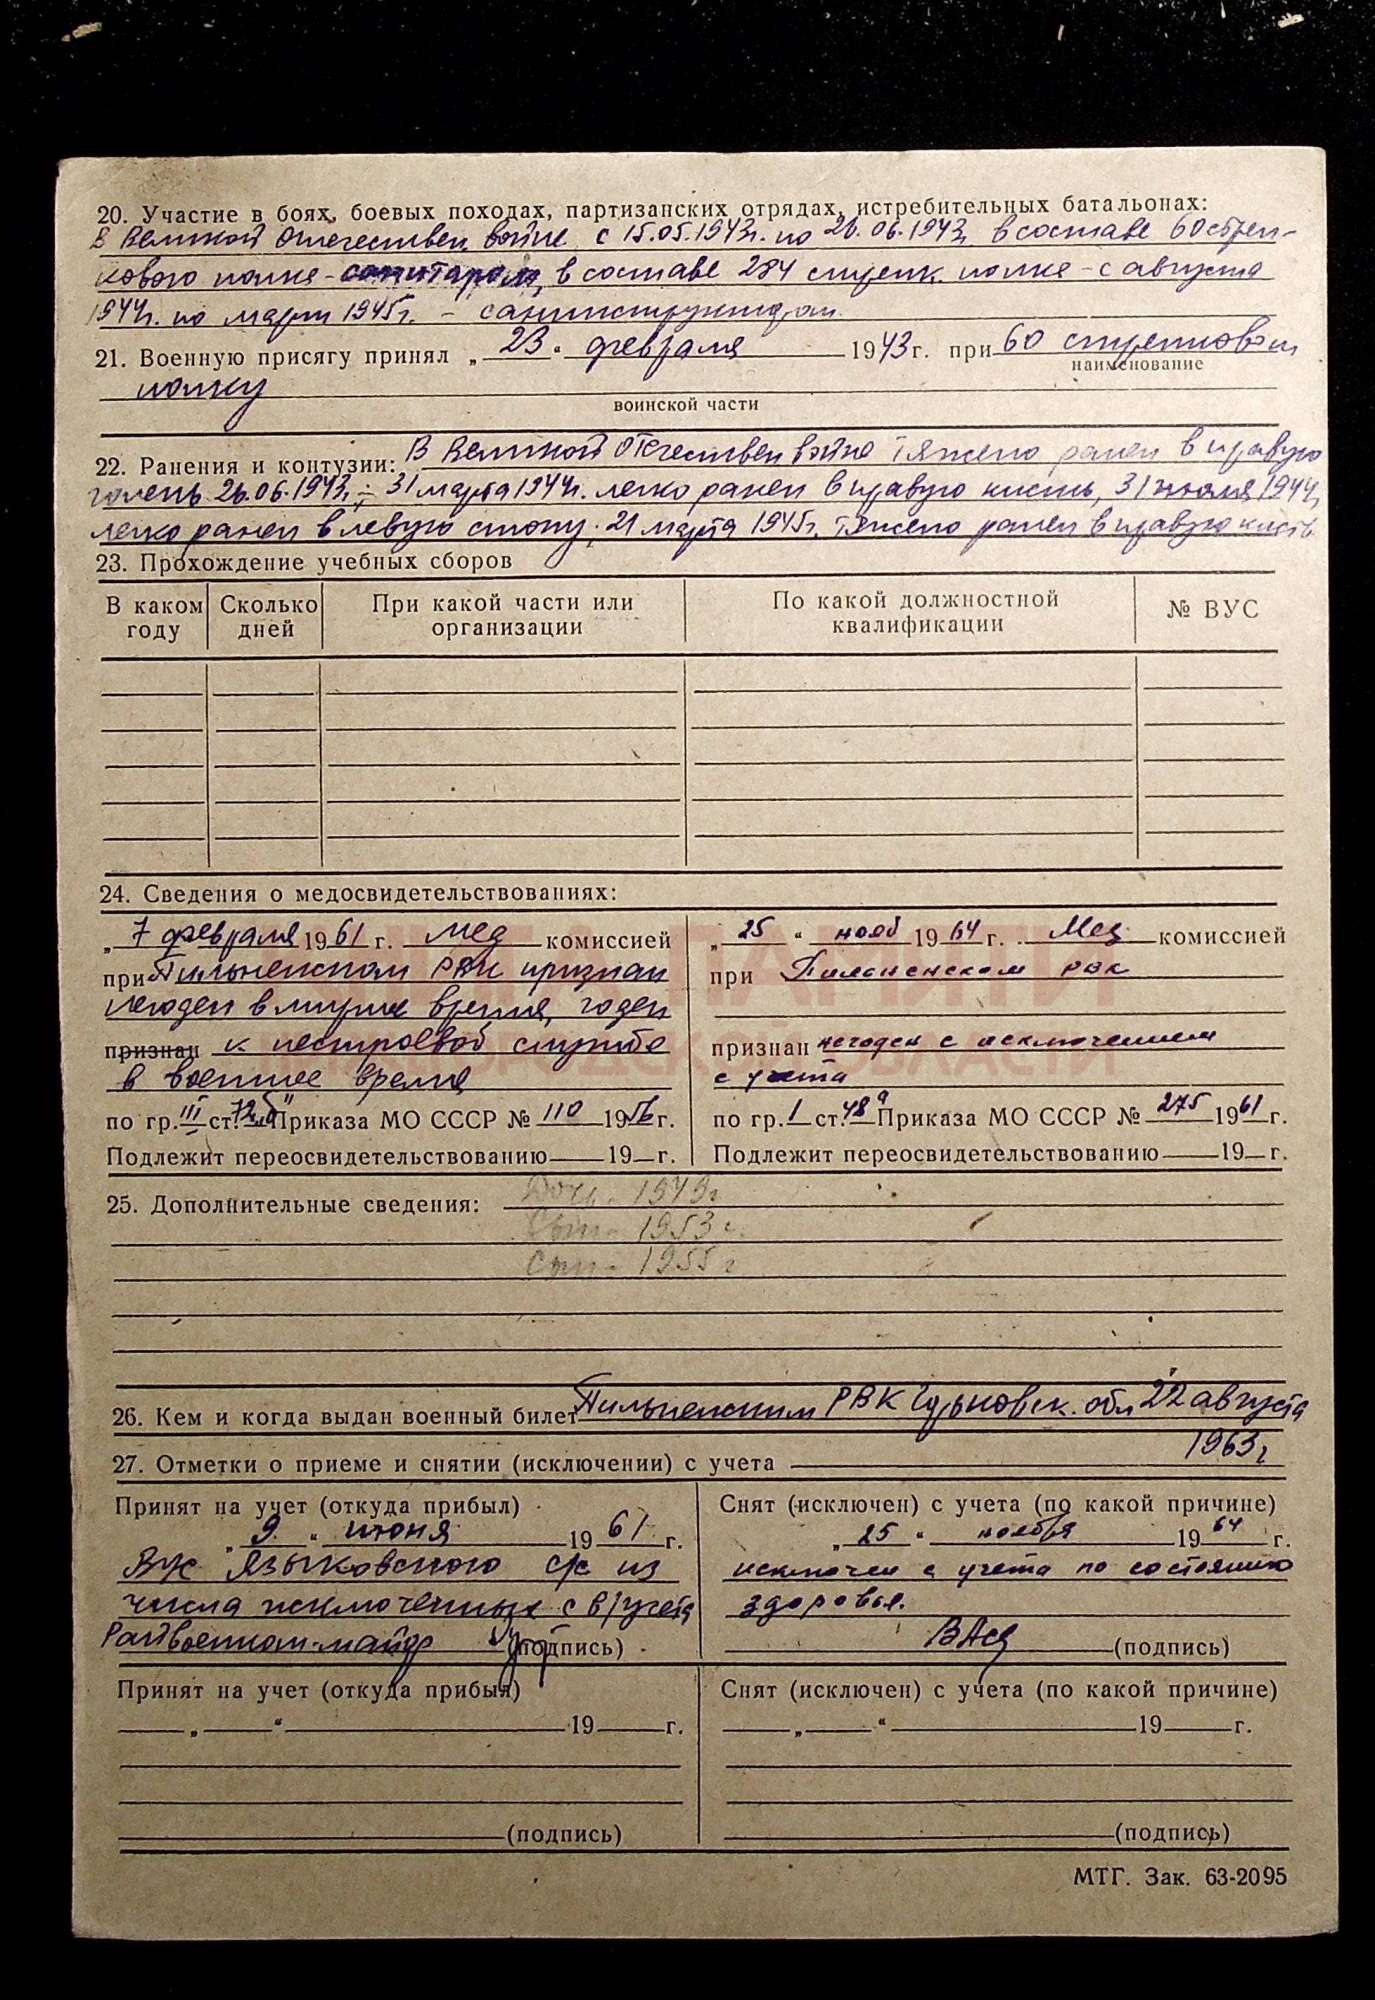 20. Участие в боях, боевых походах, партизанских отрядах, истребительных батальонах:
В Великой Отечествен. войне с 15.05.1943г. по 26.06.1943г. в составе 60 стрел-
кового полка - санитаром, в составе 284 стрелк. полка - с августа
1944г. по март 1945г. - санинструктором.
21. Военную присягу принял „ 23 “ февраля 1943г. при 60 стрелковом
наименование
полку
воинской части
22. Ранения и контузии: В Великой Отечествен войне тяжело ранен в правую
голень 26.06.1943г.; 31 марта 1944г. легко ранен в правую кисть, 31 июля 1944г.
легко ранен в левую стопу; 21 марта 1945г. тяжело ранен в правую кисть
23. Прохождение учебных сборов
В каком году Сколько дней При какой части или организации По какой должностной квалификации № ВУС
24. Сведения о медосвидетельствованиях:
„ 7 февраля 1961 г. мед комиссией
при Пильненском РВК признан
негоден в мирное время, годен
признан к нестроевой службе
в военное время
по гр. III ст. 72„б“ Приказа МО СССР № 110 1956г.
Подлежит переосвидетельствованию 19 г.
„ 25 “ нояб 1964 г. Мед комиссией
при Пильненском рвк
признан негоден с исключением
с учёта
по гр. 1 ст. 48а Приказа МО СССР № 275 1961 г.
Подлежит переосвидетельствованию 19 г.
КНИГА ПАМЯТИ
НИЖЕГОРОДСКОЙ ОБЛАСТИ
25. Дополнительные сведения: Дочь - 1949г
Сын - 1953 г.
Сын - 1955 г
26. Кем и когда выдан военный билет Пильненским РВК Горьковск. обл 22 августа
1963г
27. Отметки о приеме и снятии (исключении) с учета
Принят на учет (откуда прибыл)
„ 9 “ июня 1961 г.
Вус Языковского с/с из
числа исключенных с в/учета
Райвоенком-майор (подпись)
Снят (исключен) с учета (по какой причине)
„ 25 “ ноября 1964 г.
исключен с учета по состоянию
здоровья.
(подпись)
Принят на учет (откуда прибыл)
„ “ 19 г.
(подпись)
Снят (исключен) с учета (по какой причине)
„ “ 19 г.
(подпись)
МТГ. Зак. 63-2095